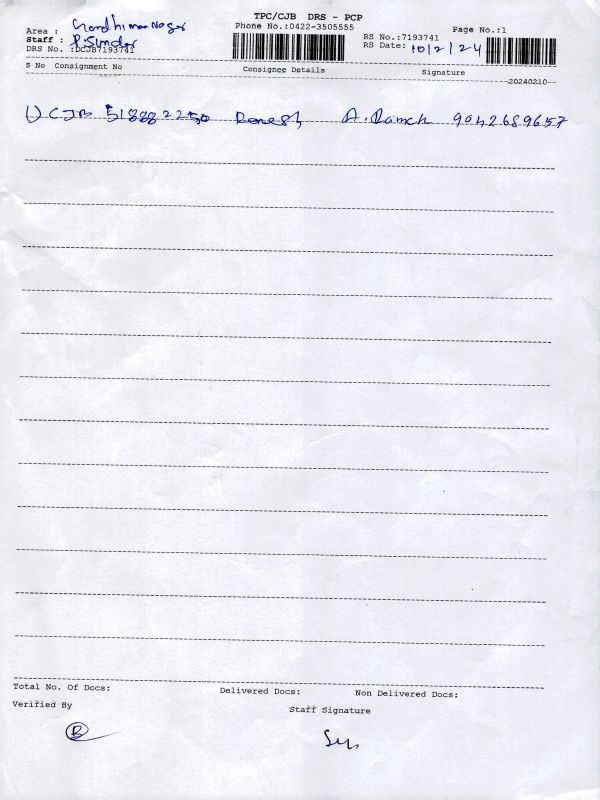 TPC/CJB DRS - PCP
Area : Gandhimanagar Phone No.:0422-3505555 RS No.:7193741 Page No.:1
Staff : P. Sundar RS Date: 10/2/24
DRS No. :DCJB7193741
S No Consignment No Consignee Details Signature
--20240210--
1) CJB 518882250 A. Ramesh 9042689657
Total No. Of Docs: Delivered Docs: Non Delivered Docs:
Verified By Staff Signature
B